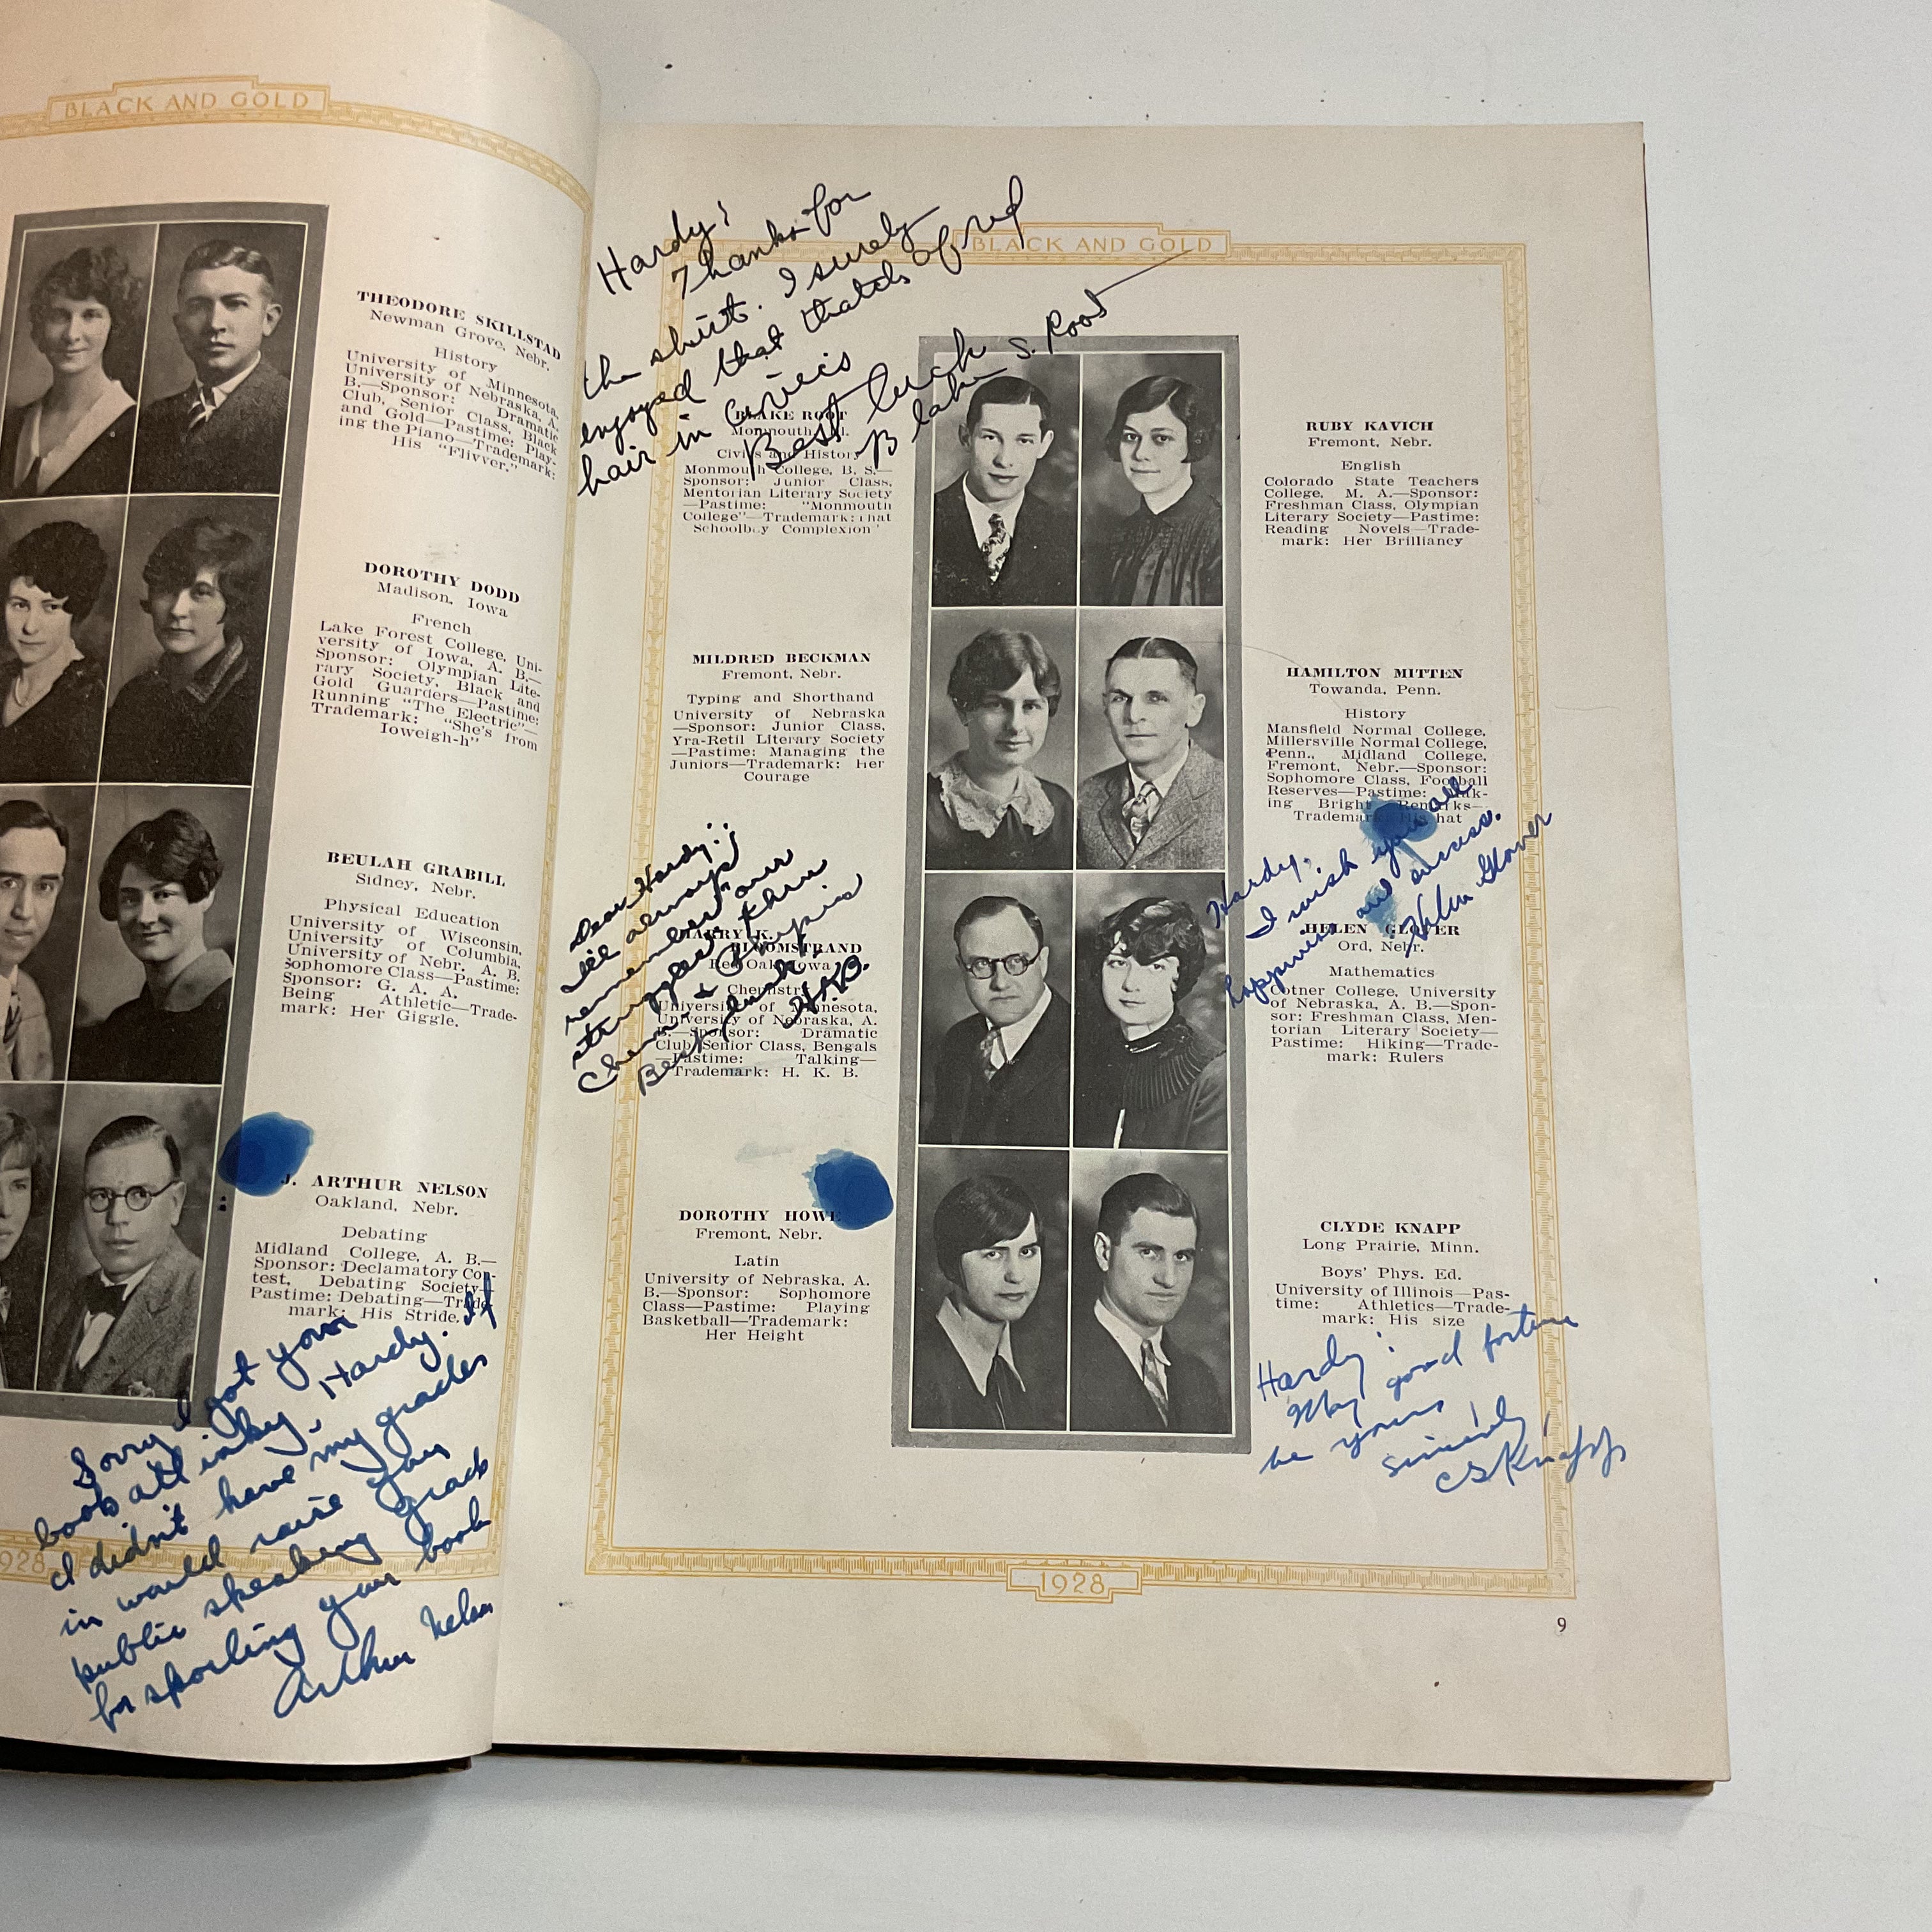 BLACK AND GOLD
THEODORE SKILLSTAD
Newman Grove, Nebr.
History
University of Minnesota,
University of Nebraska, A.
B.—Sponsor: Dramatic
Club, Senior Class, Black
and Gold—Pastime: Play-
ing the Piano—Trademark:
His "Flivver."
DOROTHY DODD
Madison, Iowa
French
Lake Forest College, Uni-
versity of Iowa, A. B.—
Sponsor: Olympian Lite-
rary Society, Black and
Gold Guarders—Pastime:
Running "The Electric"—
Trademark: "She's from
Ioweigh-h"
BEULAH GRABILL
Sidney, Nebr.
Physical Education
University of Wisconsin,
University of Columbia,
University of Nebr. A. B.
Sophomore Class—Pastime:
Sponsor: G. A. A.
Being Athletic—Trade-
mark: Her Giggle.
J. ARTHUR NELSON
Oakland, Nebr.
Debating
Midland College, A. B.—
Sponsor: Declamatory Con-
test, Debating Society—
Pastime: Debating—Trade-
mark: His Stride.
Sorry I got your
book all inky, Hardy. If
I didn't have my grades
in would raise your
public speaking grade
for spoiling your book
Arthur Nelson
1928
BLACK AND GOLD
Hardy:
Thanks for
the shirt. I surely
enjoyed that thatch of red
hair in Civics
Best luck
Blake S. Root
BLAKE ROOT
Monmouth, Ill.
Civics and History
Monmouth College, B. S.—
Sponsor: Junior Class,
Mentorian Literary Society
—Pastime: "Monmouth
College"—Trademark: That
Schoolboy Complexion"
MILDRED BECKMAN
Fremont, Nebr.
Typing and Shorthand
University of Nebraska
—Sponsor: Junior Class,
Yra-Retil Literary Society
—Pastime: Managing the
Juniors—Trademark: Her
Courage
Dear Hardy:
I'll always
remember our
struggles thru
Chem. & Olympia
Best luck,
H.K.B.
HARRY K.
BLOOMSTRAND
Red Oak, Iowa
Chemistry
University of Minnesota,
University of Nebraska, A.
B.—Sponsor: Dramatic
Club, Senior Class, Bengals
—Pastime: Talking—
Trademark: H. K. B.
DOROTHY HOWE
Fremont, Nebr.
Latin
University of Nebraska, A.
B.—Sponsor: Sophomore
Class—Pastime: Playing
Basketball—Trademark:
Her Height
RUBY KAVICH
Fremont, Nebr.
English
Colorado State Teachers
College, M. A.—Sponsor:
Freshman Class, Olympian
Literary Society—Pastime:
Reading Novels—Trade-
mark: Her Brilliancy
HAMILTON MITTEN
Towanda, Penn.
History
Mansfield Normal College,
Millersville Normal College,
Penn., Midland College,
Fremont, Nebr.—Sponsor:
Sophomore Class, Football
Reserves—Pastime: Mak-
ing Bright Remarks—
Trademark: His hat
Hardy,
I wish you all
happiness and success.
Helen Glover
HELEN GLOVER
Ord, Nebr.
Mathematics
Cotner College, University
of Nebraska, A. B.—Spon-
sor: Freshman Class, Men-
torian Literary Society—
Pastime: Hiking—Trade-
mark: Rulers
CLYDE KNAPP
Long Prairie, Minn.
Boys' Phys. Ed.
University of Illinois—Pas-
time: Athletics—Trade-
mark: His size
Hardy:
May good fortune
be yours
Sincerely,
CGKnapp
1928
9